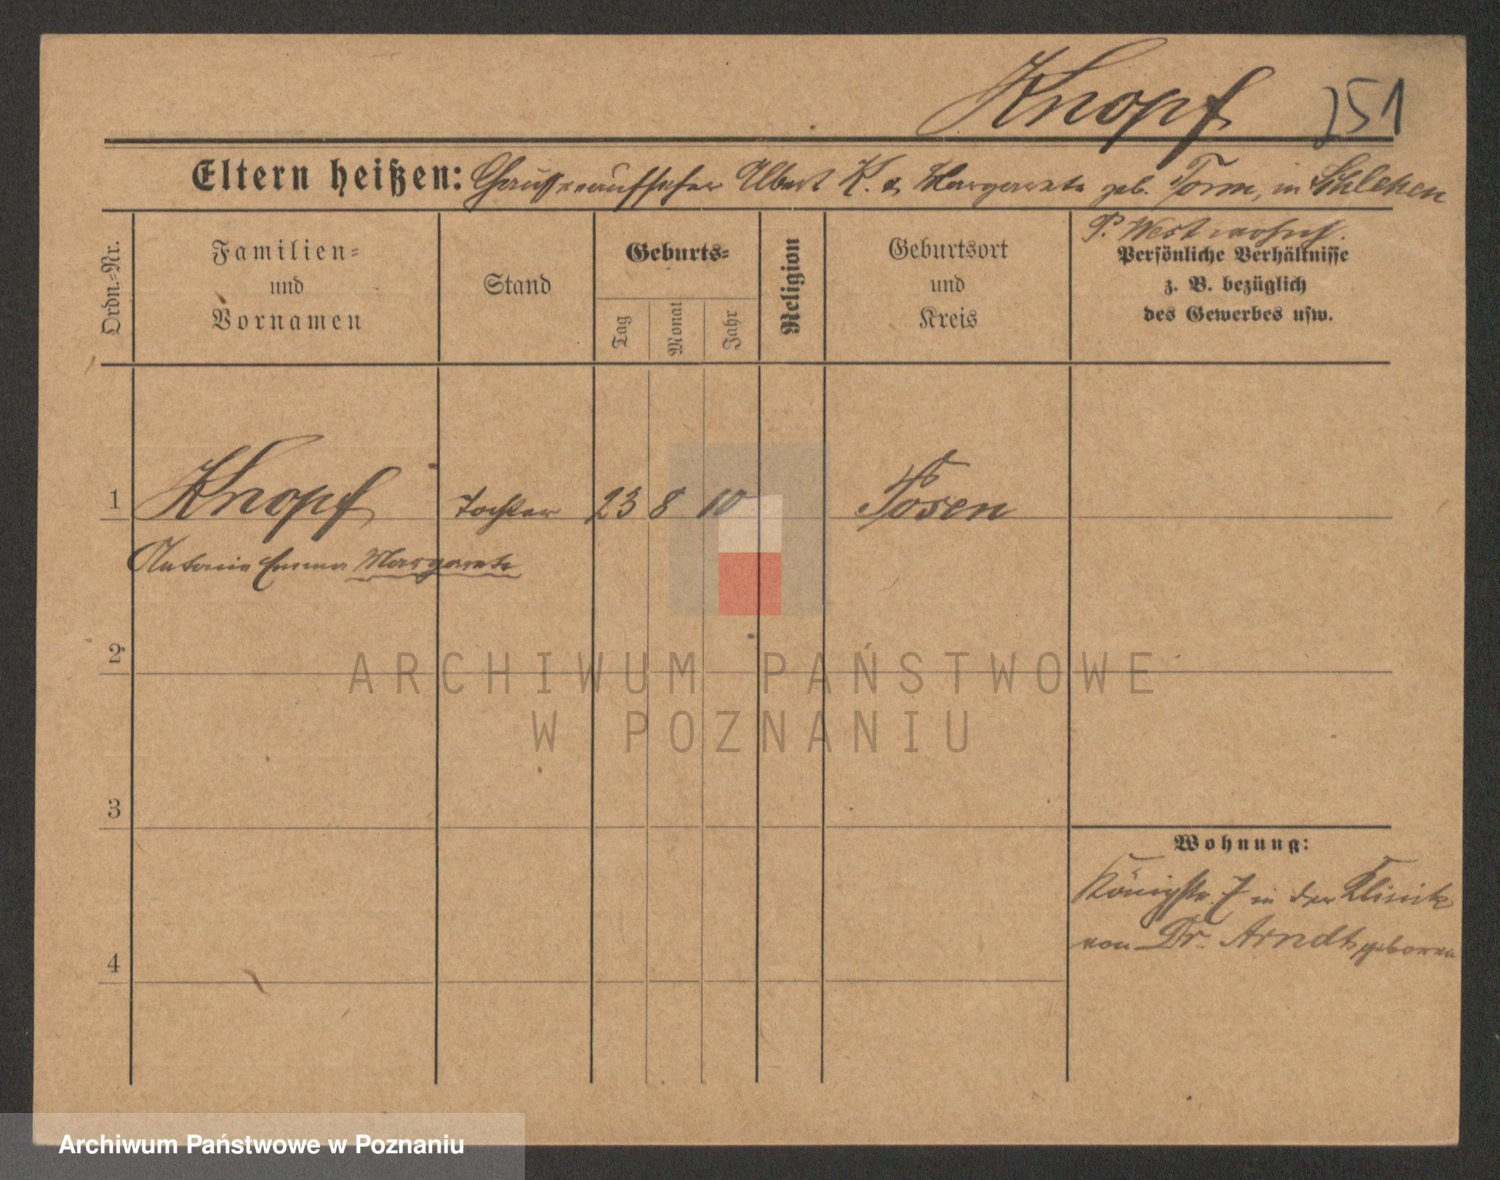 Knopf 251
Eltern heißen: Chausseeaufseher Albert K. & Margarete geb. Torm, in Schlehen
P. West wohnh.
Ordn.-Nr.
Familien-
und
Vornamen
Stand
Geburts-
Tag
Monat
Jahr
Religion
Geburtsort
und
Kreis
Persönliche Verhältnisse
z. B. bezüglich
des Gewerbes usw.
1 Knopf Tochter 23 8 10 Posen
Antonie Emma Margarete
2
ARCHIWUM PAŃSTWOWE
W POZNANIU
3
Wohnung:
Königstr. 7 in der Klinik
von Dr. Arndt geboren
4
Archiwum Państwowe w Poznaniu